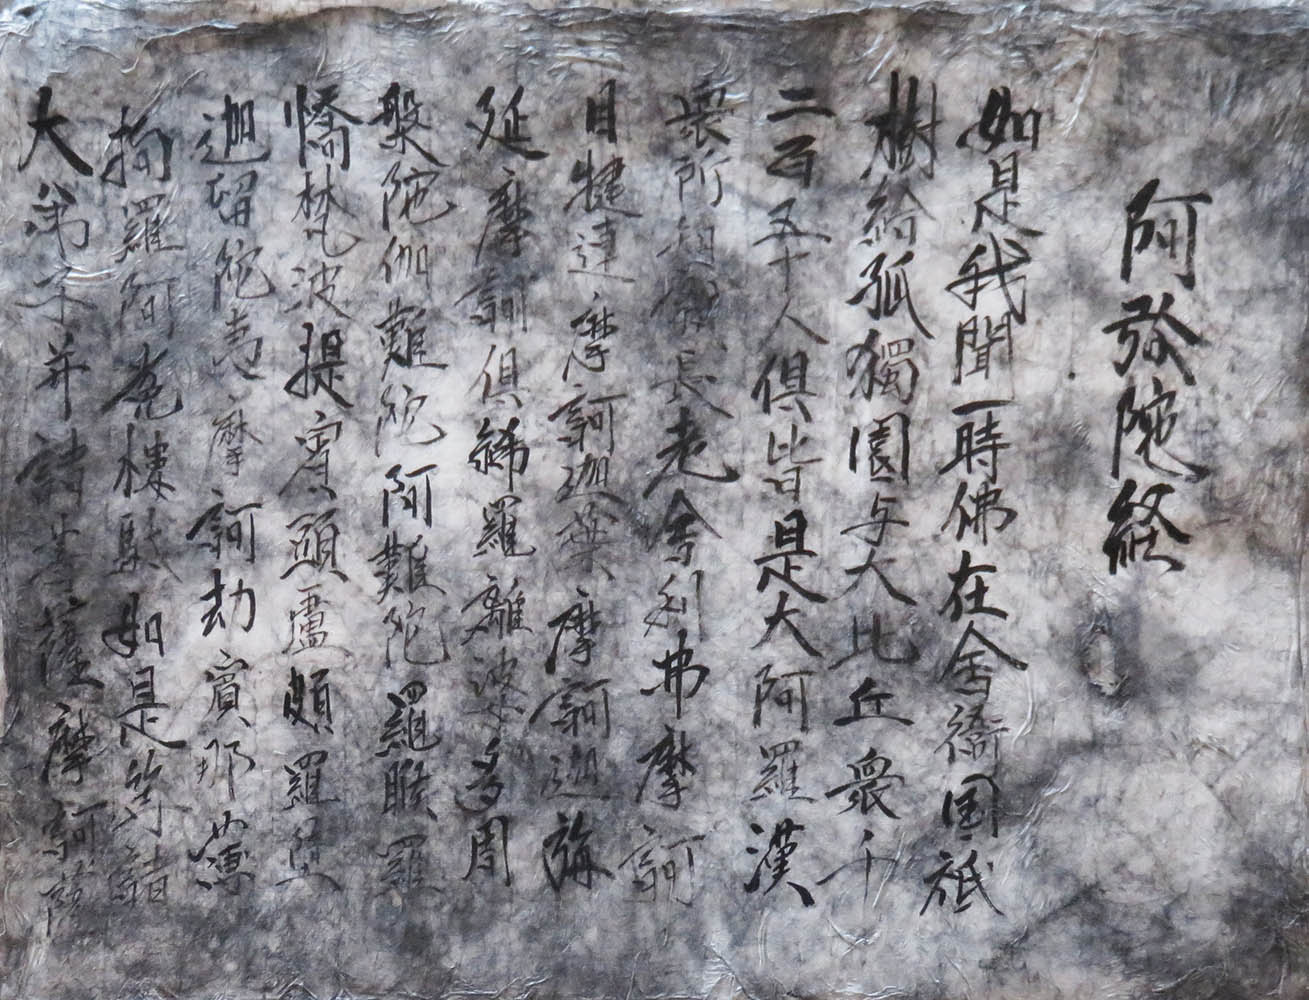 阿弥陀経
如是我聞一時佛在舎衛国祇
樹給孤獨園与大比丘衆千
二百五十人俱皆是大阿羅漢
衆所知識長老舎利弗摩訶
目犍連摩訶迦葉摩訶迦旃
延摩訶俱絺羅離婆多周
槃陀伽難陀阿難陀羅睺羅
憍梵波提賓頭盧頗羅堕
迦留陀夷摩訶劫賓那薄
拘羅阿㝹楼駄如是等諸
大弟子并諸菩薩摩訶薩